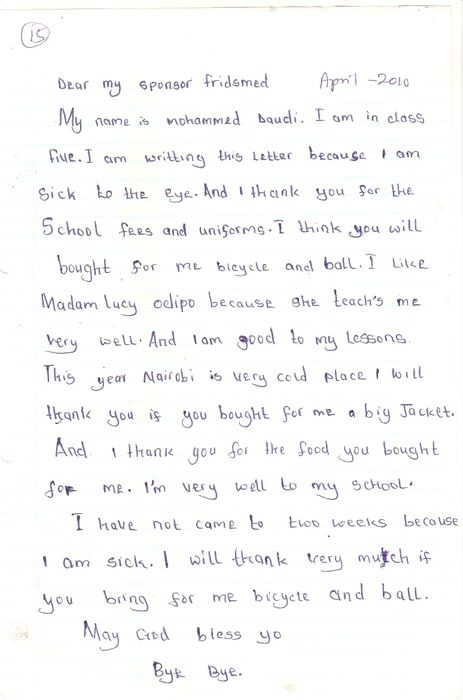 15
Dear my sponsor fridsmed April - 2010
My name is mohammed Daudi. I am in class
five. I am writting this Letter because I am
sick to the eye. And I thank you for the
School fees and uniforms. I think you will
bought for me bicycle and ball. I Like
Madam Lucy odipo because she teach's me
very well. And I am good to my Lessons.
This year Nairobi is very cold place I will
thank you if you bought for me a big Jacket.
And I thank you for the food you bought
for me. I'm very well to my school.
I have not came to two weeks because
I am sick. I will thank very mutch if
you bring for me bicycle and ball.
May God bless yo
Bye Bye.